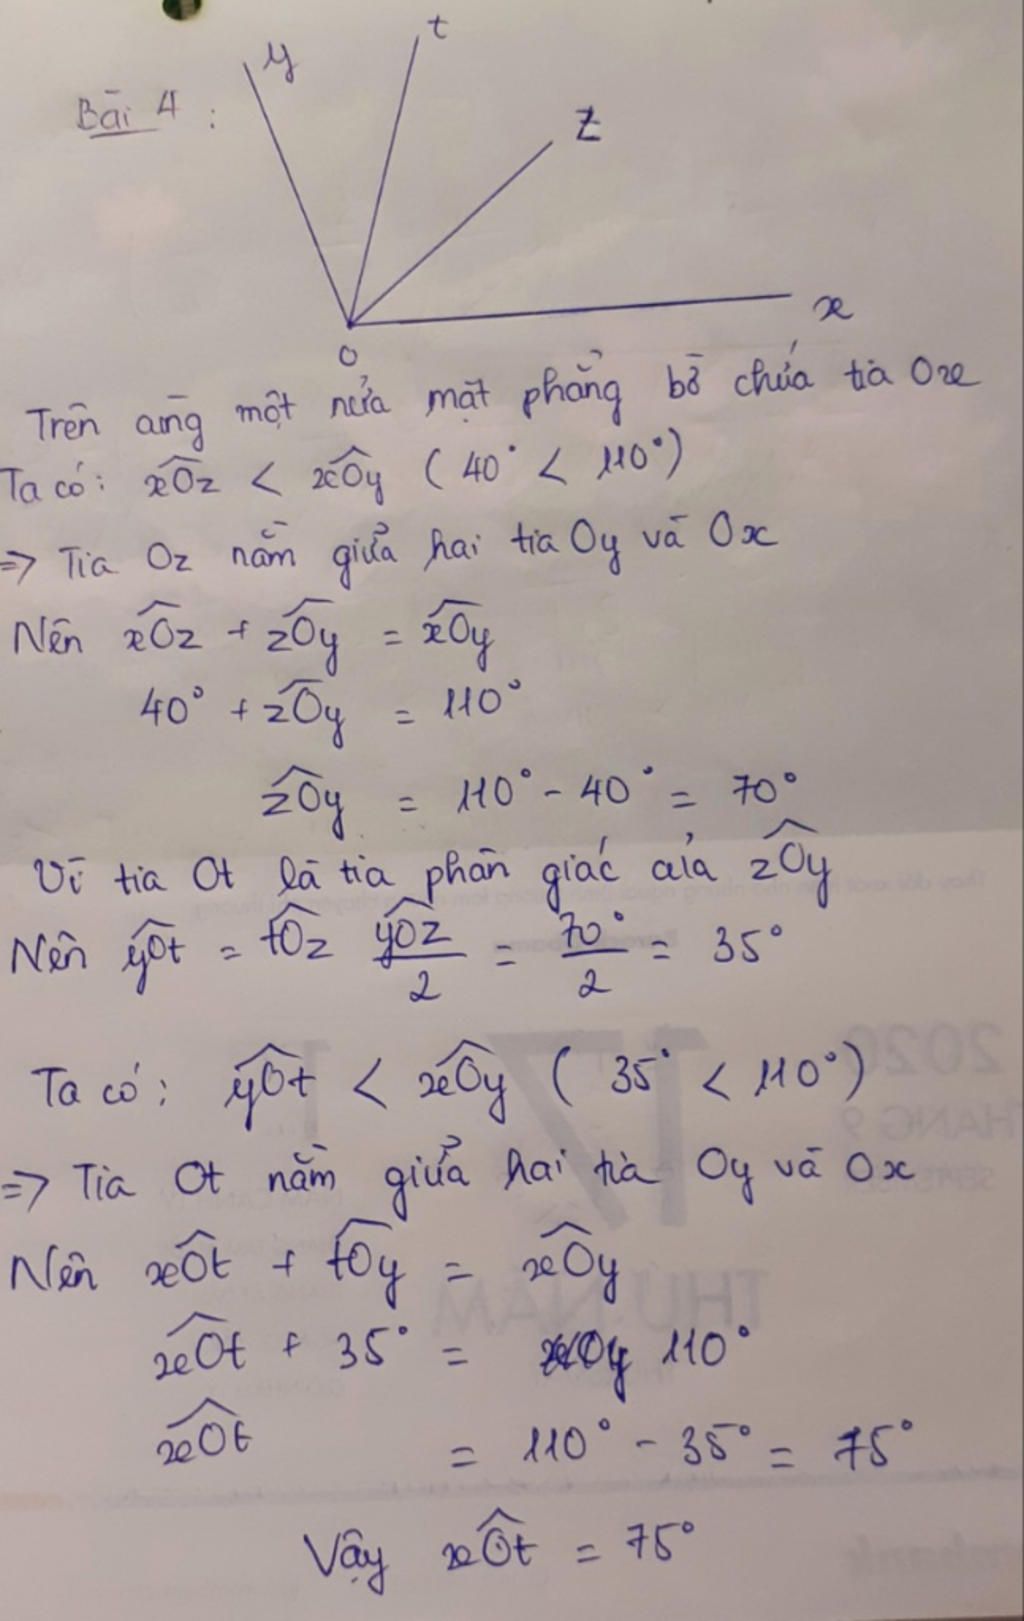 y
t
Bài 4 :
z
x
O
Trên cùng một nửa mặt phẳng bờ chứa tia Ox
Ta có: xÔz < xÔy ( 40° < 110° )
=> Tia Oz nằm giữa hai tia Oy và Ox
Nên xÔz + zÔy = xÔy
40° + zÔy = 110°
zÔy = 110° - 40° = 70°
Vì tia Ot là tia phân giác của zÔy
Nên yÔt = tÔz yÔz/2 = 70°/2 = 35°
Ta có: yÔt < xÔy ( 35° < 110° )
=> Tia Ot nằm giữa hai tia Oy và Ox
Nên xÔt + tÔy = xÔy
xÔt + 35° = 110°
xÔt = 110° - 35° = 75°
Vậy xÔt = 75°